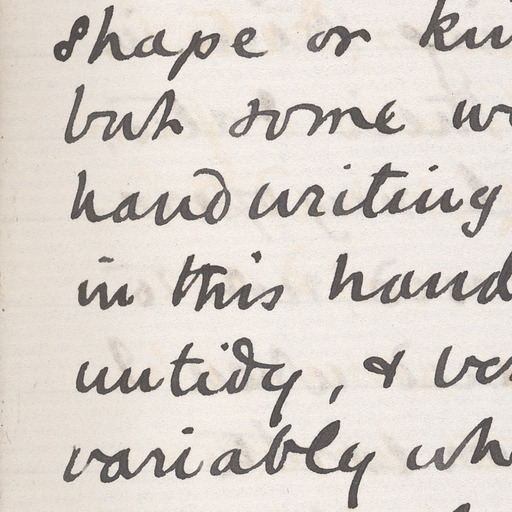 shape or
but some
handwriting
in this hand
untidy, &
variably